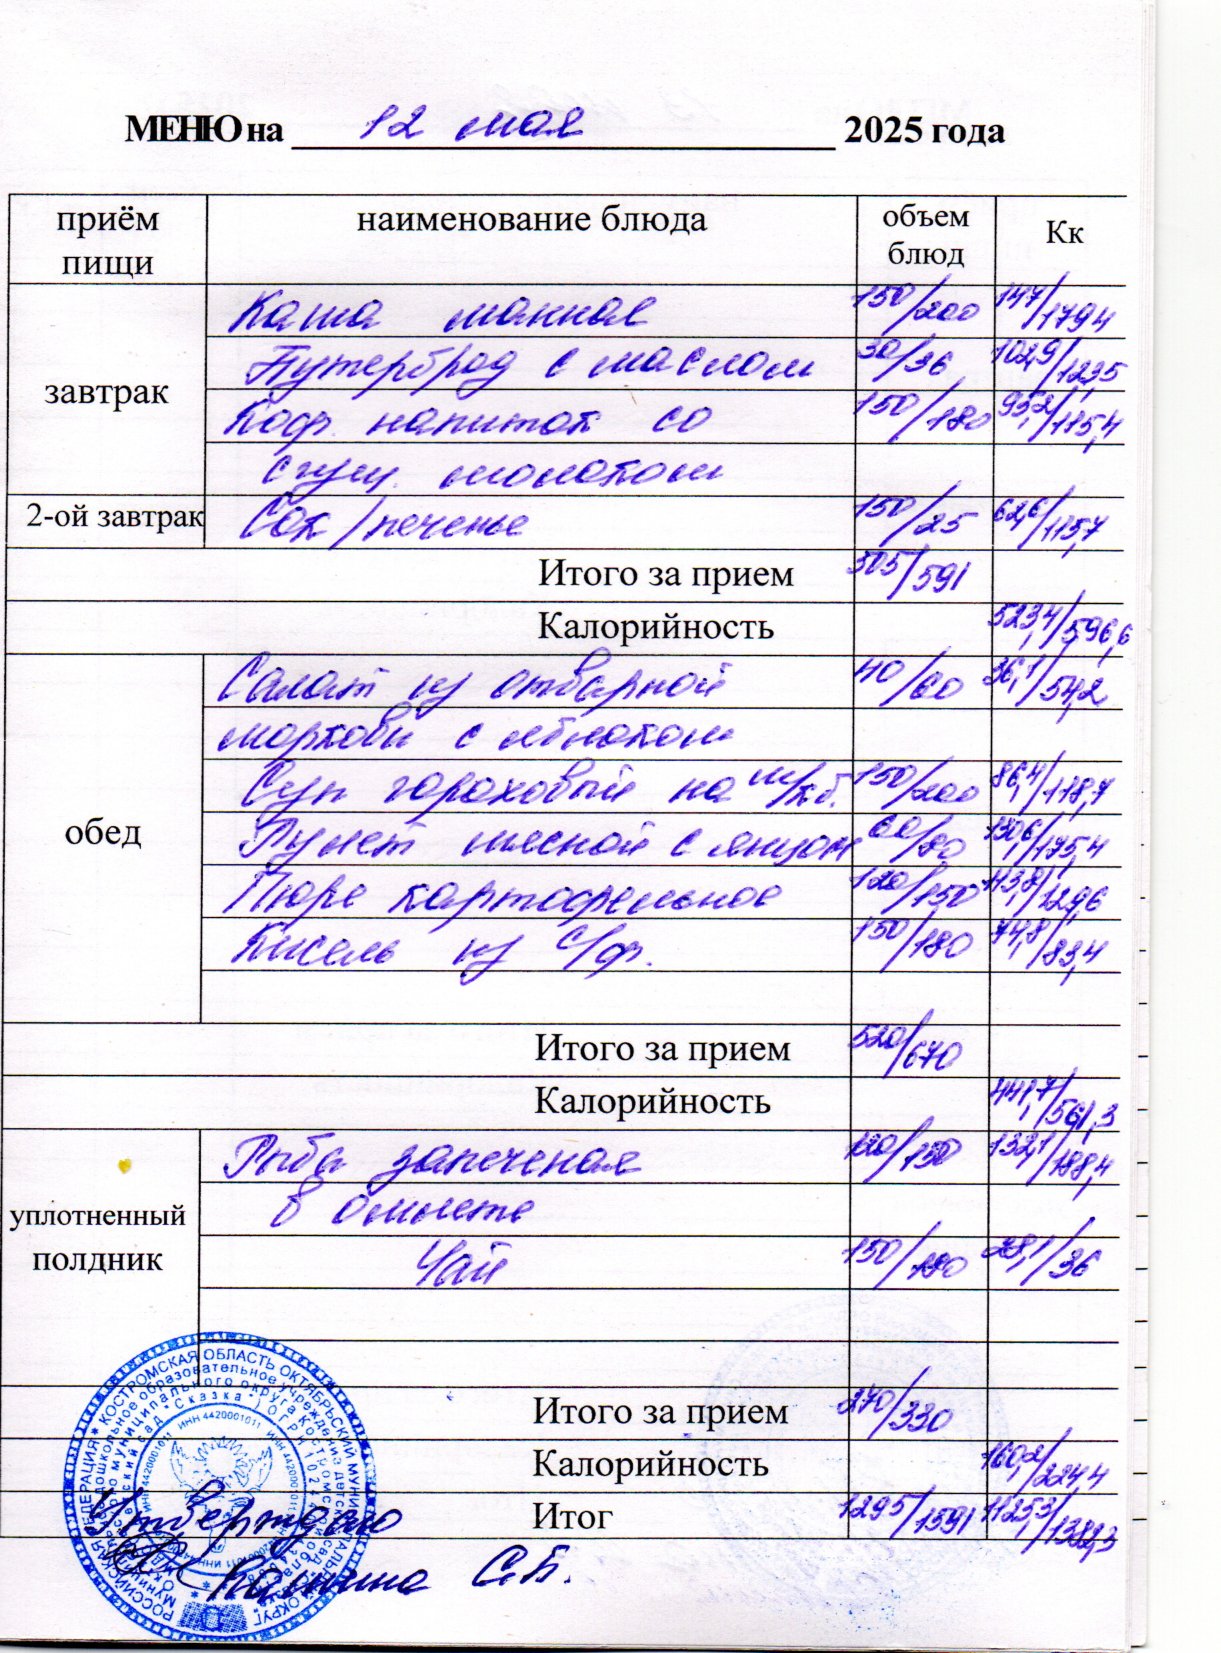 МЕНЮ на 12 мая 2025 года
приём пищи наименование блюда объем блюд Кк
завтрак
Каша манная 150/200 147/179,4
Бутерброд с маслом 30/36 102,9/123,5
Коф. напиток со 150/180 95,2/115,4
сгущ. молоком
2-ой завтрак Сок/печенье 150/25 62,6/115,7
Итого за прием 505/591
Калорийность 523,4/596,6
обед
Салат из отварной 40/60 36,1/54,2
моркови с яблоком
Суп гороховый на м/к б. 150/200 86,4/118,7
Рулет мясной с яйцом 60/80 130,6/175,4
Пюре картофельное 120/150 113,8/129,6
Кисель из с/ф. 150/180 74,8/83,4
Итого за прием 520/670
Калорийность 441,7/561,3
уплотненный полдник
Рыба запеченая 120/150 132,1/188,4
в омлете
Чай 150/180 28,1/36
Итого за прием 270/330
Калорийность 160,2/224,4
Итог 1295/1591 1125,3/1382,3
Утверждаю
Калинина С.Б.
РОССИЙСКАЯ ФЕДЕРАЦИЯ * КОСТРОМСКАЯ ОБЛАСТЬ ОКТЯБРЬСКИЙ МУНИЦИПАЛЬНЫЙ ОКРУГ
ИНН 4420001011 ИНН 4420001011